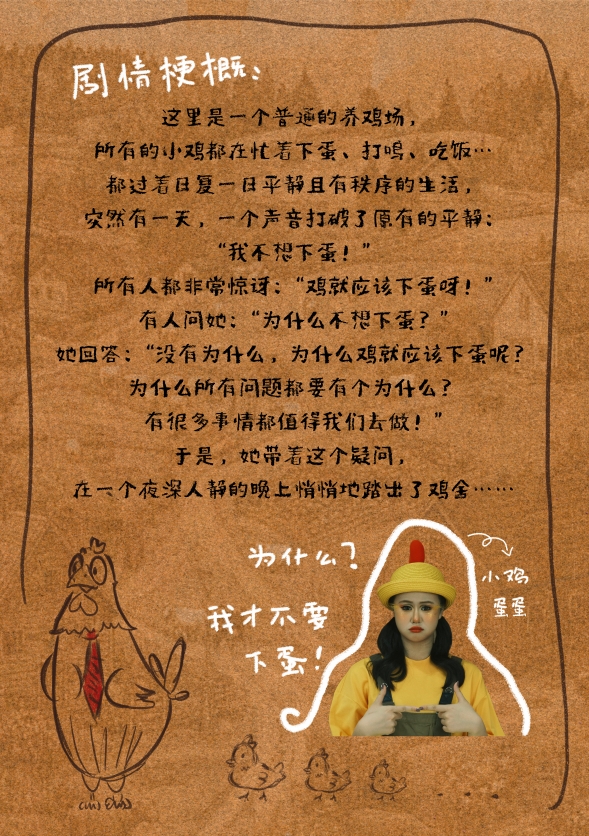 剧情梗概：
这里是一个普通的养鸡场，
所有的小鸡都在忙着下蛋、打鸣、吃饭…
都过着日复一日平静且有秩序的生活，
突然有一天，一个声音打破了原有的平静：
“我不想下蛋！”
所有人都非常惊讶：“鸡就应该下蛋呀！”
有人问她：“为什么不想下蛋？”
她回答：“没有为什么，为什么鸡就应该下蛋呢？
为什么所有问题都要有个为什么？
有很多事情都值得我们去做！”
于是，她带着这个疑问，
在一个夜深人静的晚上悄悄地踏出了鸡舍……
为什么？
我才不要
下蛋！
小鸡
蛋蛋